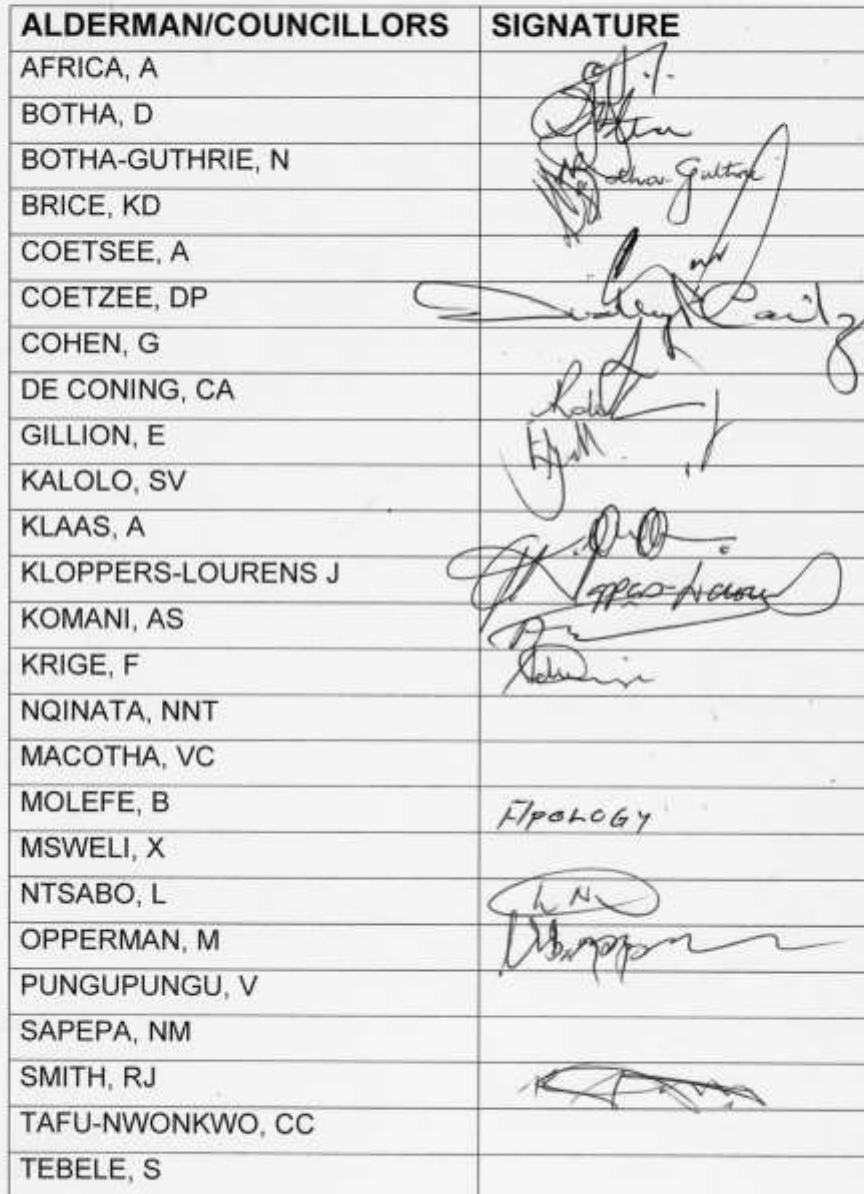 ALDERMAN/COUNCILLORS SIGNATURE
AFRICA, A
BOTHA, D
BOTHA-GUTHRIE, N
BRICE, KD
COETSEE, A
COETZEE, DP
COHEN, G
DE CONING, CA
GILLION, E
KALOLO, SV
KLAAS, A
KLOPPERS-LOURENS J
KOMANI, AS
KRIGE, F
NQINATA, NNT
MACOTHA, VC
MOLEFE, B APOLOGY
MSWELI, X
NTSABO, L L N
OPPERMAN, M
PUNGUPUNGU, V
SAPEPA, NM
SMITH, RJ
TAFU-NWONKWO, CC
TEBELE, S